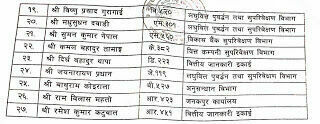 १९. श्री विष्णु प्रसाद गुरागाई वि.५२० लघुवित्त पुनर्वहन तथा सुपरिवेक्षण विभाग
२०. श्री मधुसुधन दवाडी एस.१०१ लघुवित्त पुनर्वहन तथा सुपरिवेक्षण विभाग
२१. श्री सुमन कुमार नेपाल एस.५६० विकास बैंक सुपरिवेक्षण विभाग
२२. श्री कमल बहादुर लामाङ्ग के.३८२ वित्त कम्पनी सुपरिवेक्षण विभाग
२३. श्री दिर्घ बहादुर थापा डि.२२३ वित्तीय जानकारी इकाई
२४. श्री जयनारायण प्रधान जे.११९ लघुवित्त सुपरिवेक्षण विभाग
२५. श्री बाबुराम कोइराला वी.४२७ अनुसन्धान विभाग
२६. श्री राम बिलास महतो आर.४२३ जनकपुर कार्यालय
२७. श्री रमेश कुमार कटुवाल आर.४५१ वित्तीय जानकारी इकाई